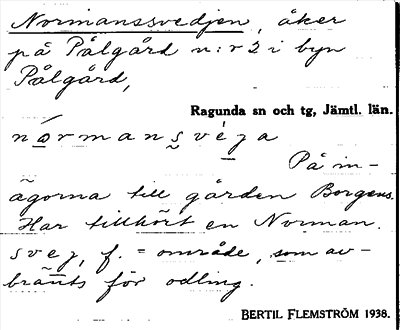 Normanssvedjen, åker
på Pålgård n:r 2 i byn
Pålgård,
Ragunda sn och tg, Jämtl. län.
nórmansvéja
På in-
ägorna till gården Borgens.
Har tillhört en Norman.
svej, f. = område, som av-
bränts för odling.
BERTIL FLEMSTRÖM 1938.